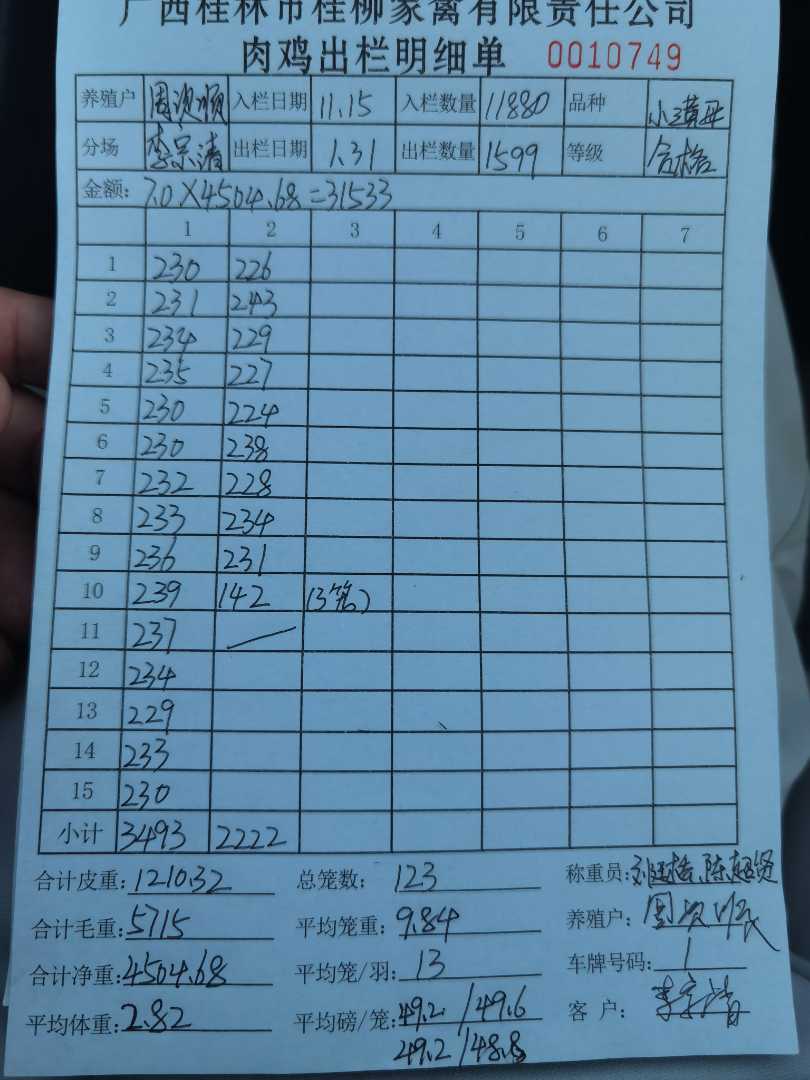 广西桂林市桂柳家禽有限责任公司
肉鸡出栏明细单 0010749
养殖户 周次顺 入栏日期 11.15 入栏数量 11880 品种
分场 李宗清 出栏日期 1.31 出栏数量 1599 等级 合格
金额: 7.0×4504.68=31533
1 2 3 4 5 6 7
1 230 226
2 231 243
3 234 229
4 235 227
5 230 224
6 230 238
7 232 228
8 233 234
9 236 231
10 239 142 (3笼)
11 237
12 234
13 229
14 233
15 230
小计 3493 2222
合计皮重: 1210.32 总笼数: 123 称重员:
合计毛重: 5715 平均笼重: 9.84 养殖户:
合计净重: 4504.68 平均笼/羽: 13 车牌号码: 1
平均体重: 2.82 平均磅/笼: 49.2 / 49.6 客户: 李宗清
49.2 / 48.8